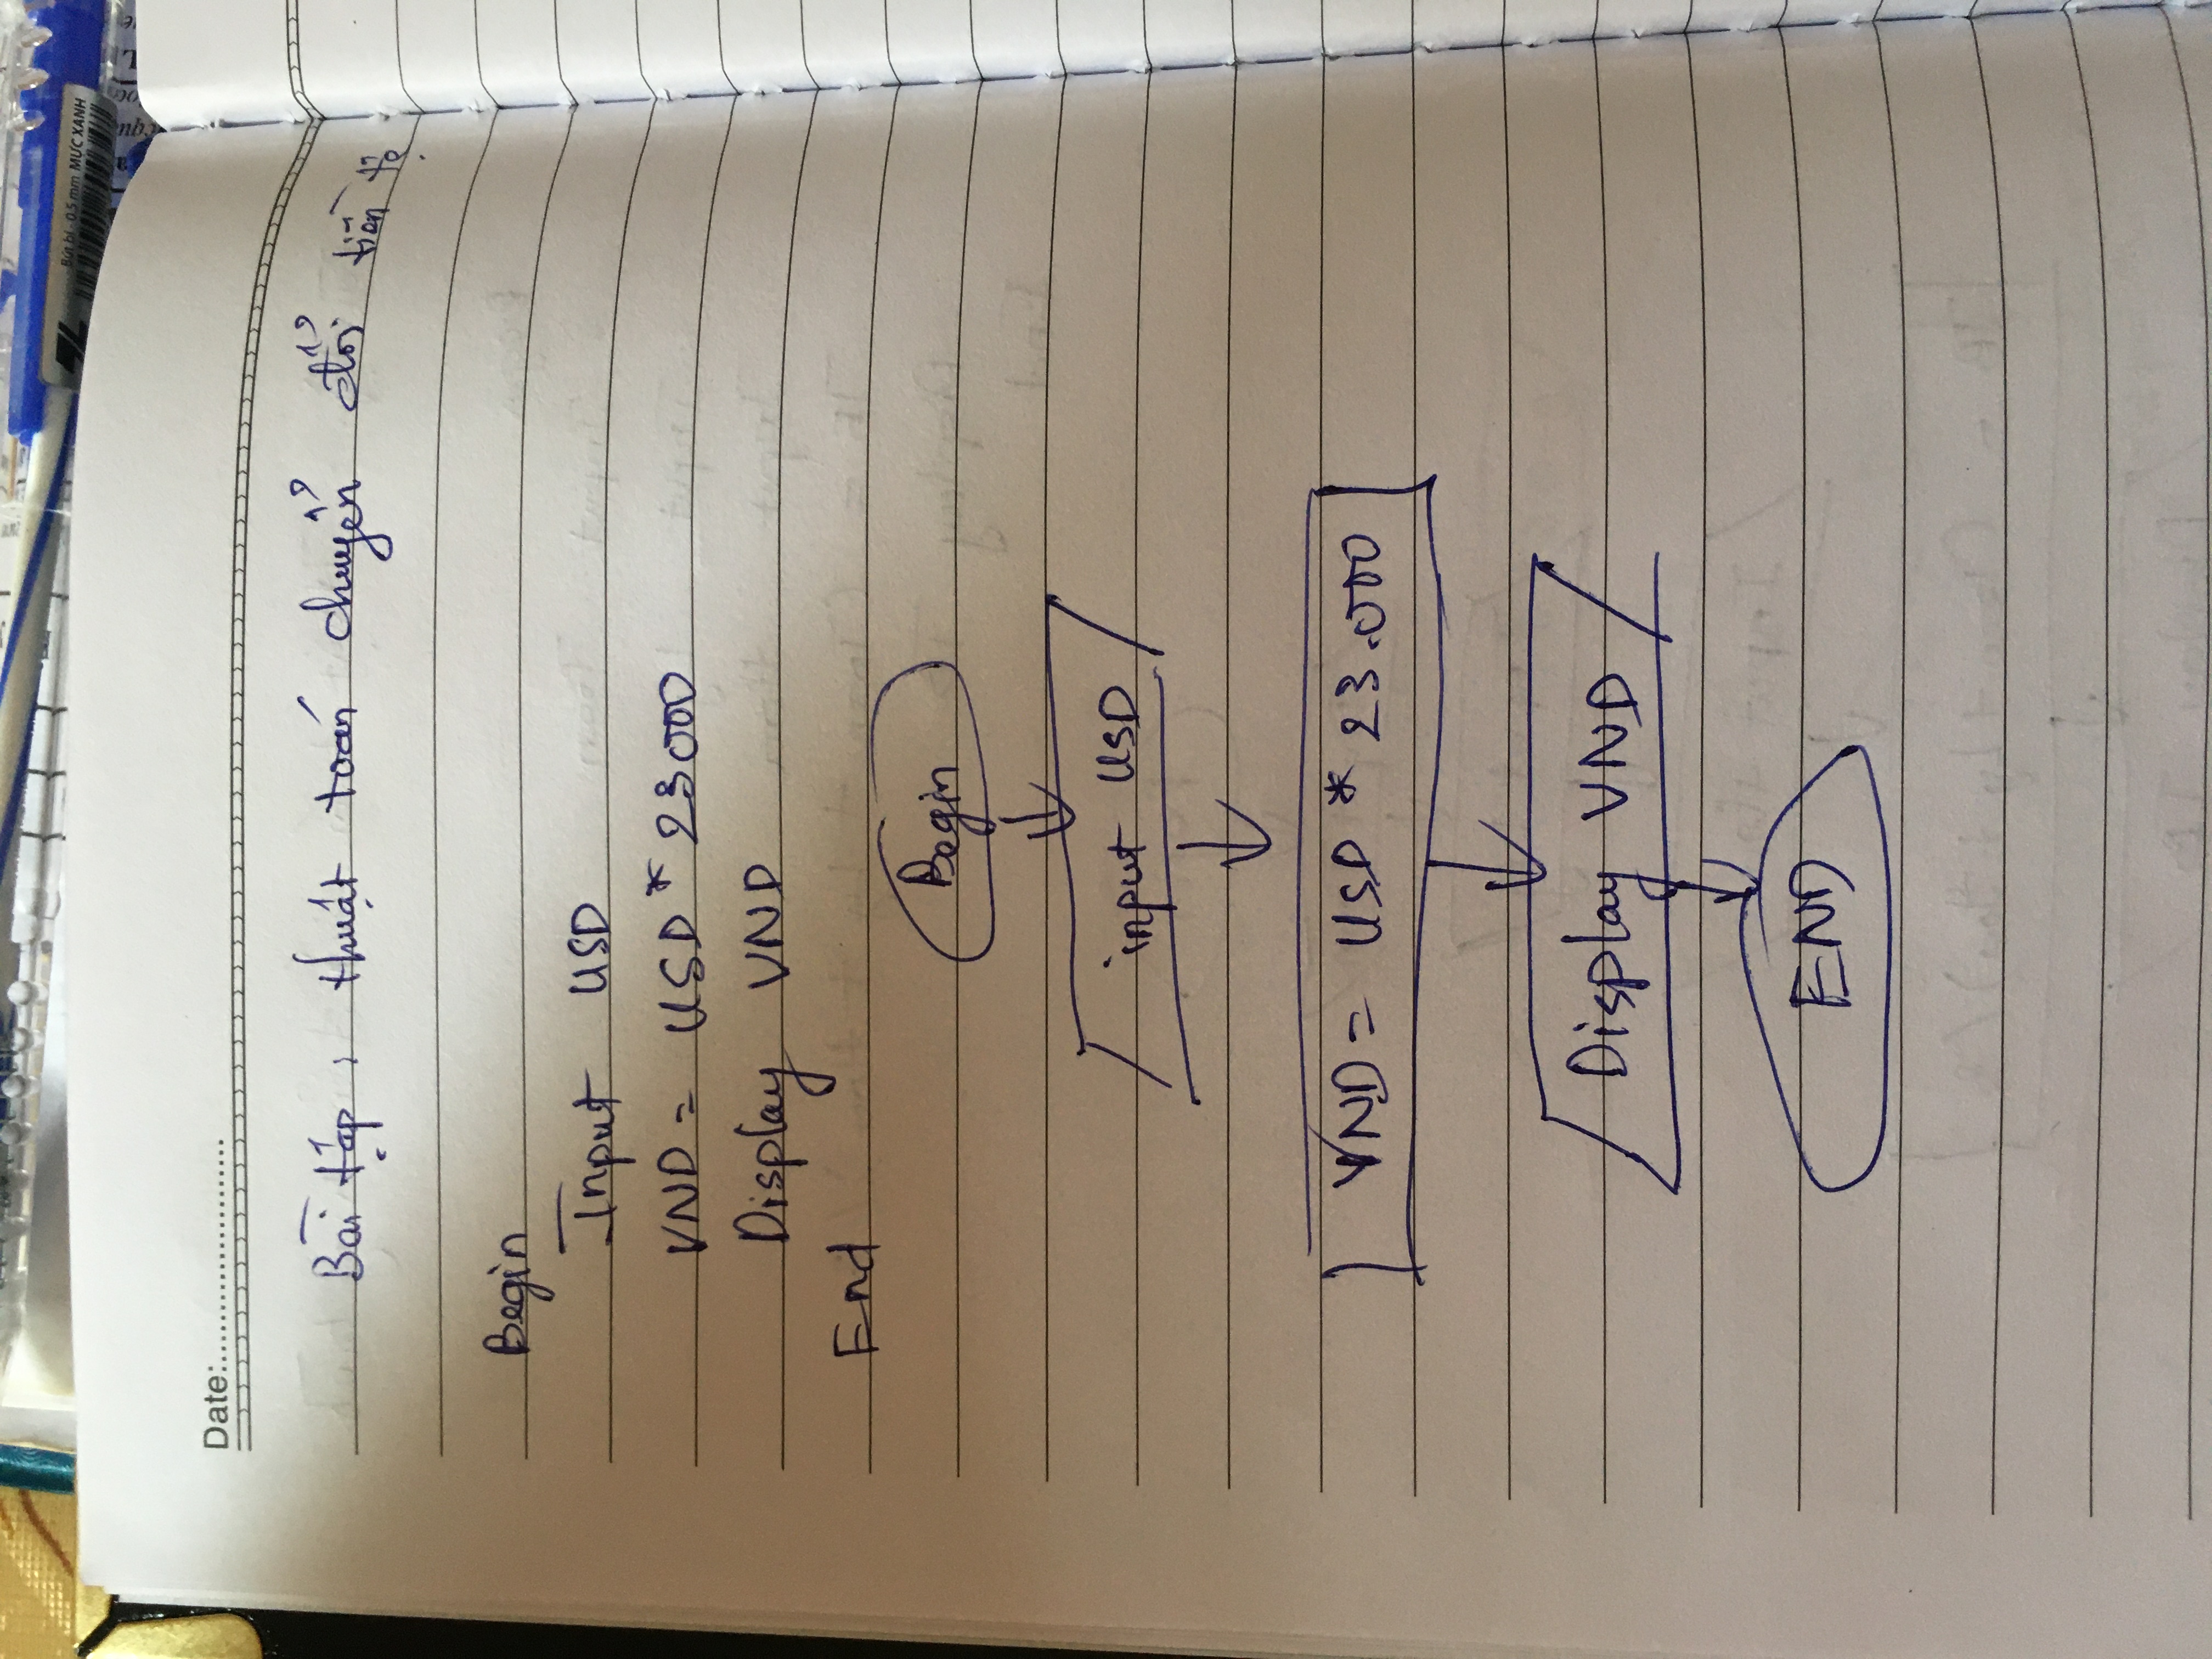 Bút bi - 0.5 mm MỰC XANH
Date:......................
Bài tập : thuật toán chuyển đổi tiền tệ
Begin
Input USD
VND = USD * 23000
Display VND
End
Begin
input USD
VND = USD * 23.000
Display VND
END